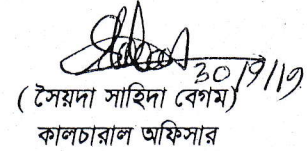 30/9/19
( সৈয়দা সাহিদা বেগম)
কালচারাল অফিসার